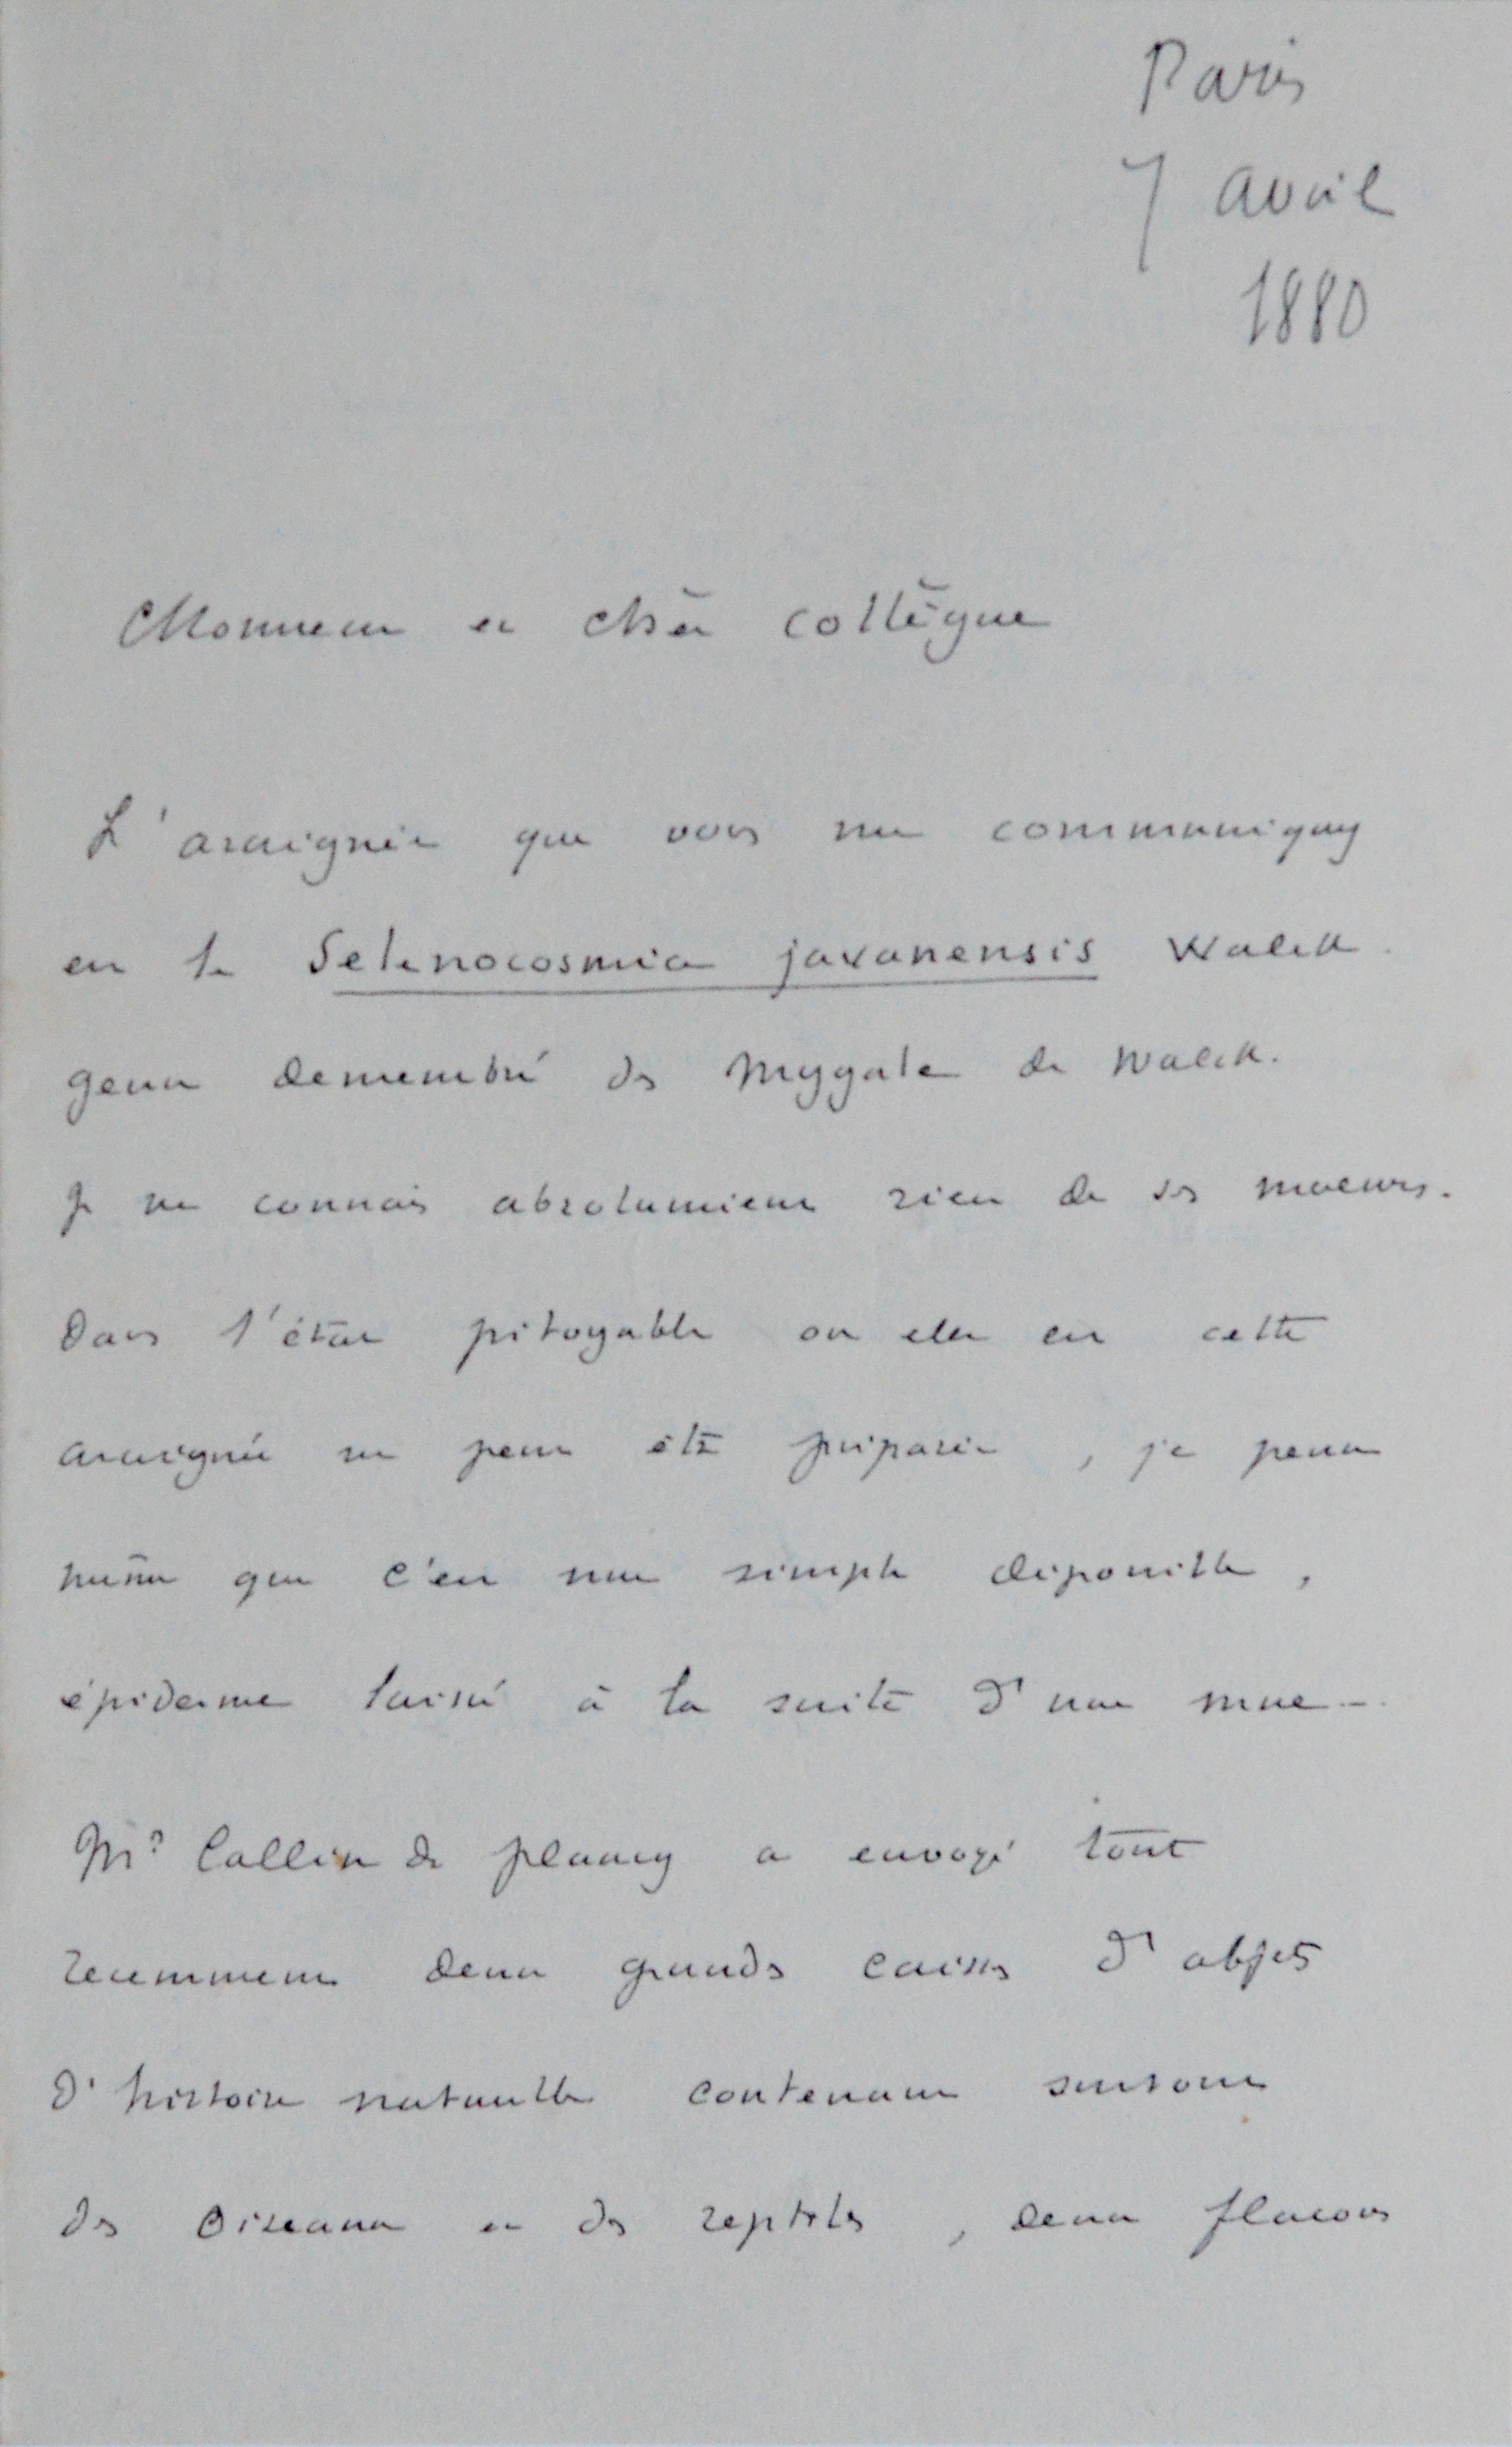 Paris
7 avril
1880
Monsieur et cher collègue
L'araignée que vous me communiquez
est le Selenocosmia javanensis Walck.
genre demembré des Mygale de Walck.
Je ne connais absolument rien de ses moeurs.
Dans l'état pitoyable ou elle est cette
araignée ne peut être préparée, je pense
même que c'est une simple dépouille,
épiderme laissé à la suite d'une mue –.
Mr Collin de plancy a envoyé tout
recemment deux grandes caisses d'objets
d'histoire naturelle contenant surtout
des oiseaux et des reptiles, deux flacons